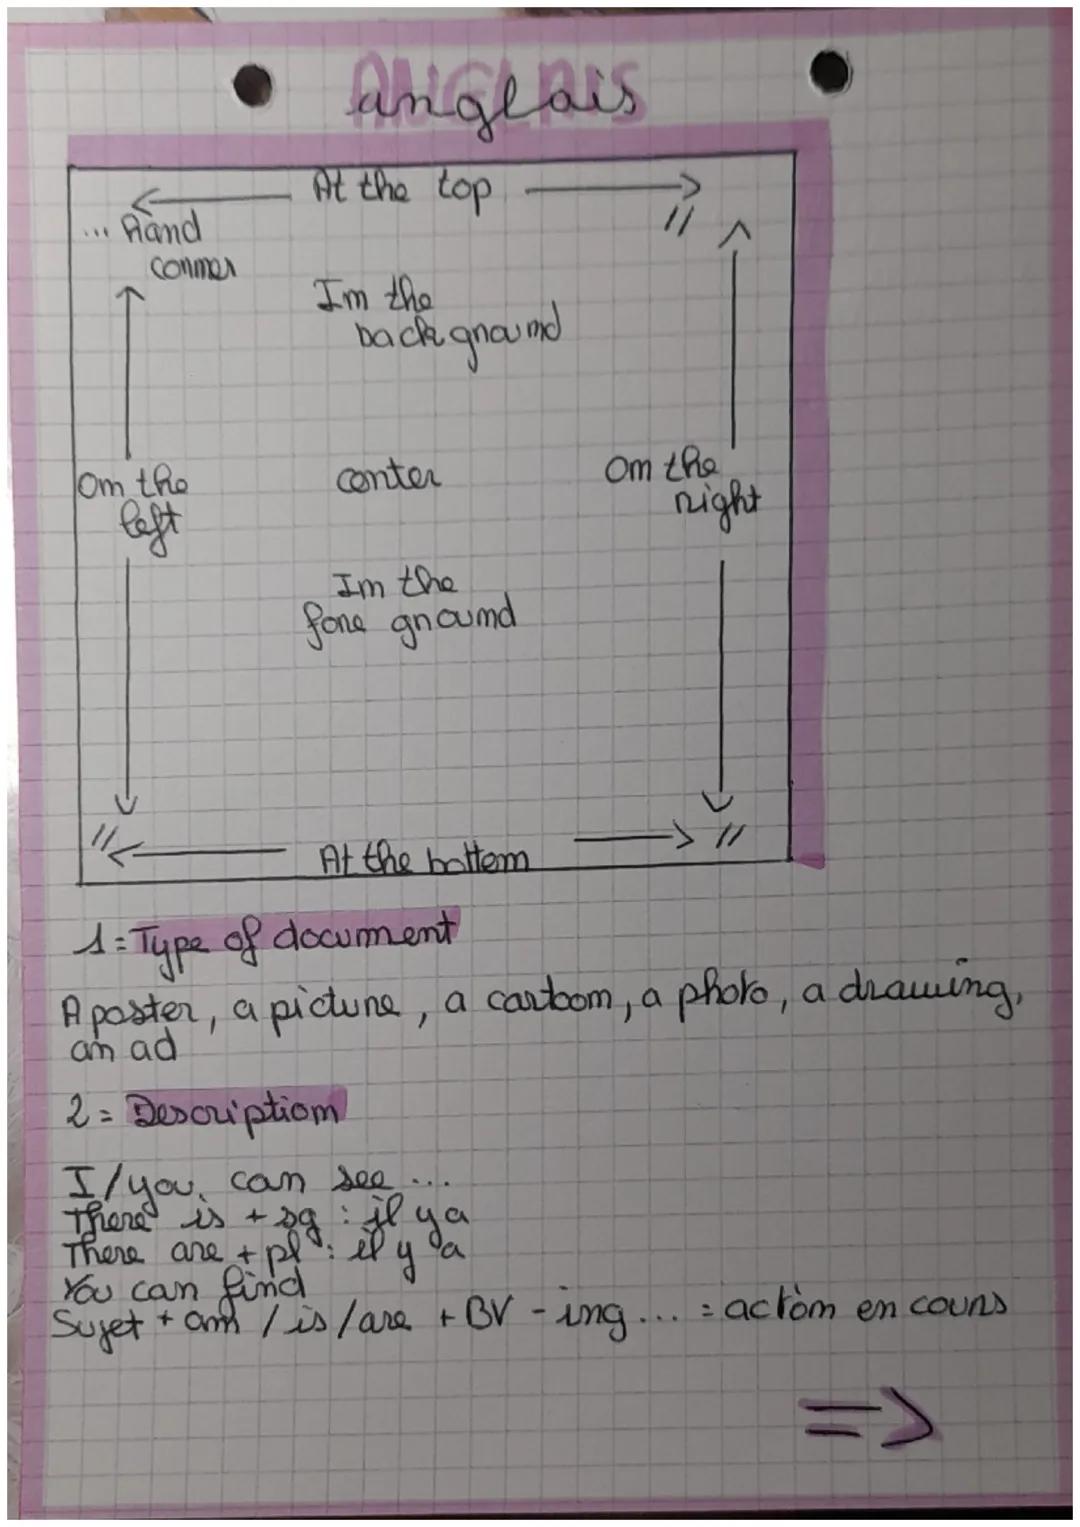 ANGLAIS
anglais
At the top
... Hand
corner
//
In the
background
On the
left
center
On the
right
In the
fore ground
//
At the bottom
//
1 = Type of document
A poster, a picture, a cartoon, a photo, a drawing,
an ad
2 = Description
I/you can see ...
There is + sg : il y a
There are + pl : il y a
You can find
Sujet + am / is / are + BV - ing ... = action en cours
=>